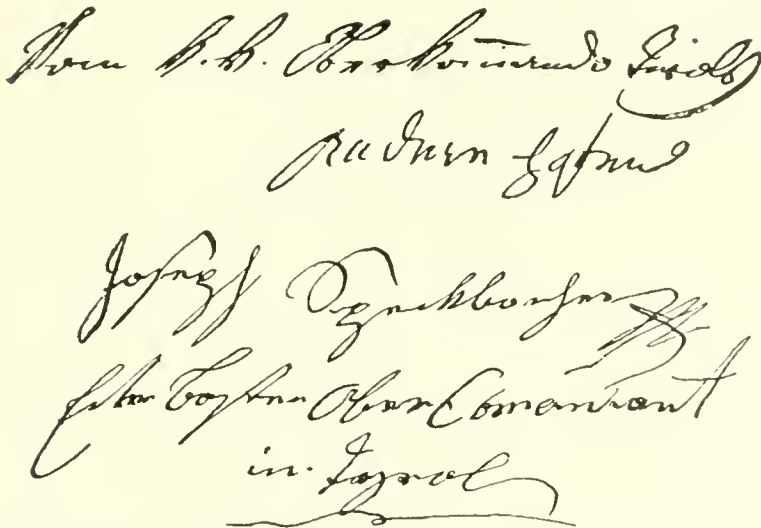 Vom k. k. Oberkom̅ando Tirols
Andreas Hofer
Joseph Speckbacher
ober Comandant
in Tyrol